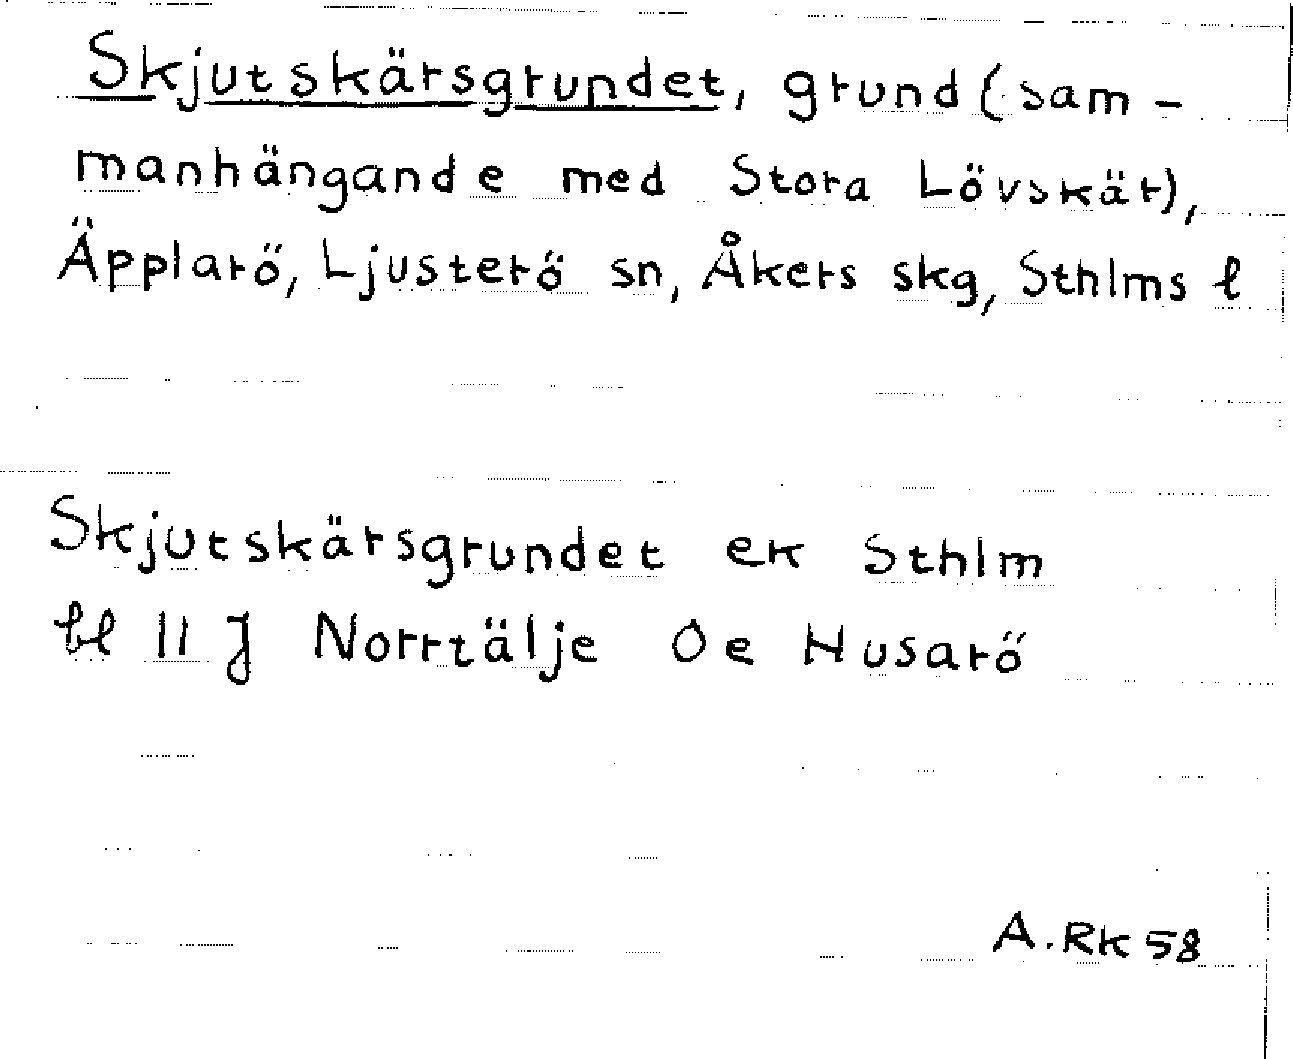 Skjutskärsgrundet, grund (sam-
manhängande med Stora Lövskär),
Äpplarö, Ljusterö sn, Åkers skg, Sthlms l
Skjutskärsgrundet ek Sthlm
bl 11 J Norrtälje Öe Husarö
A. Rk 58